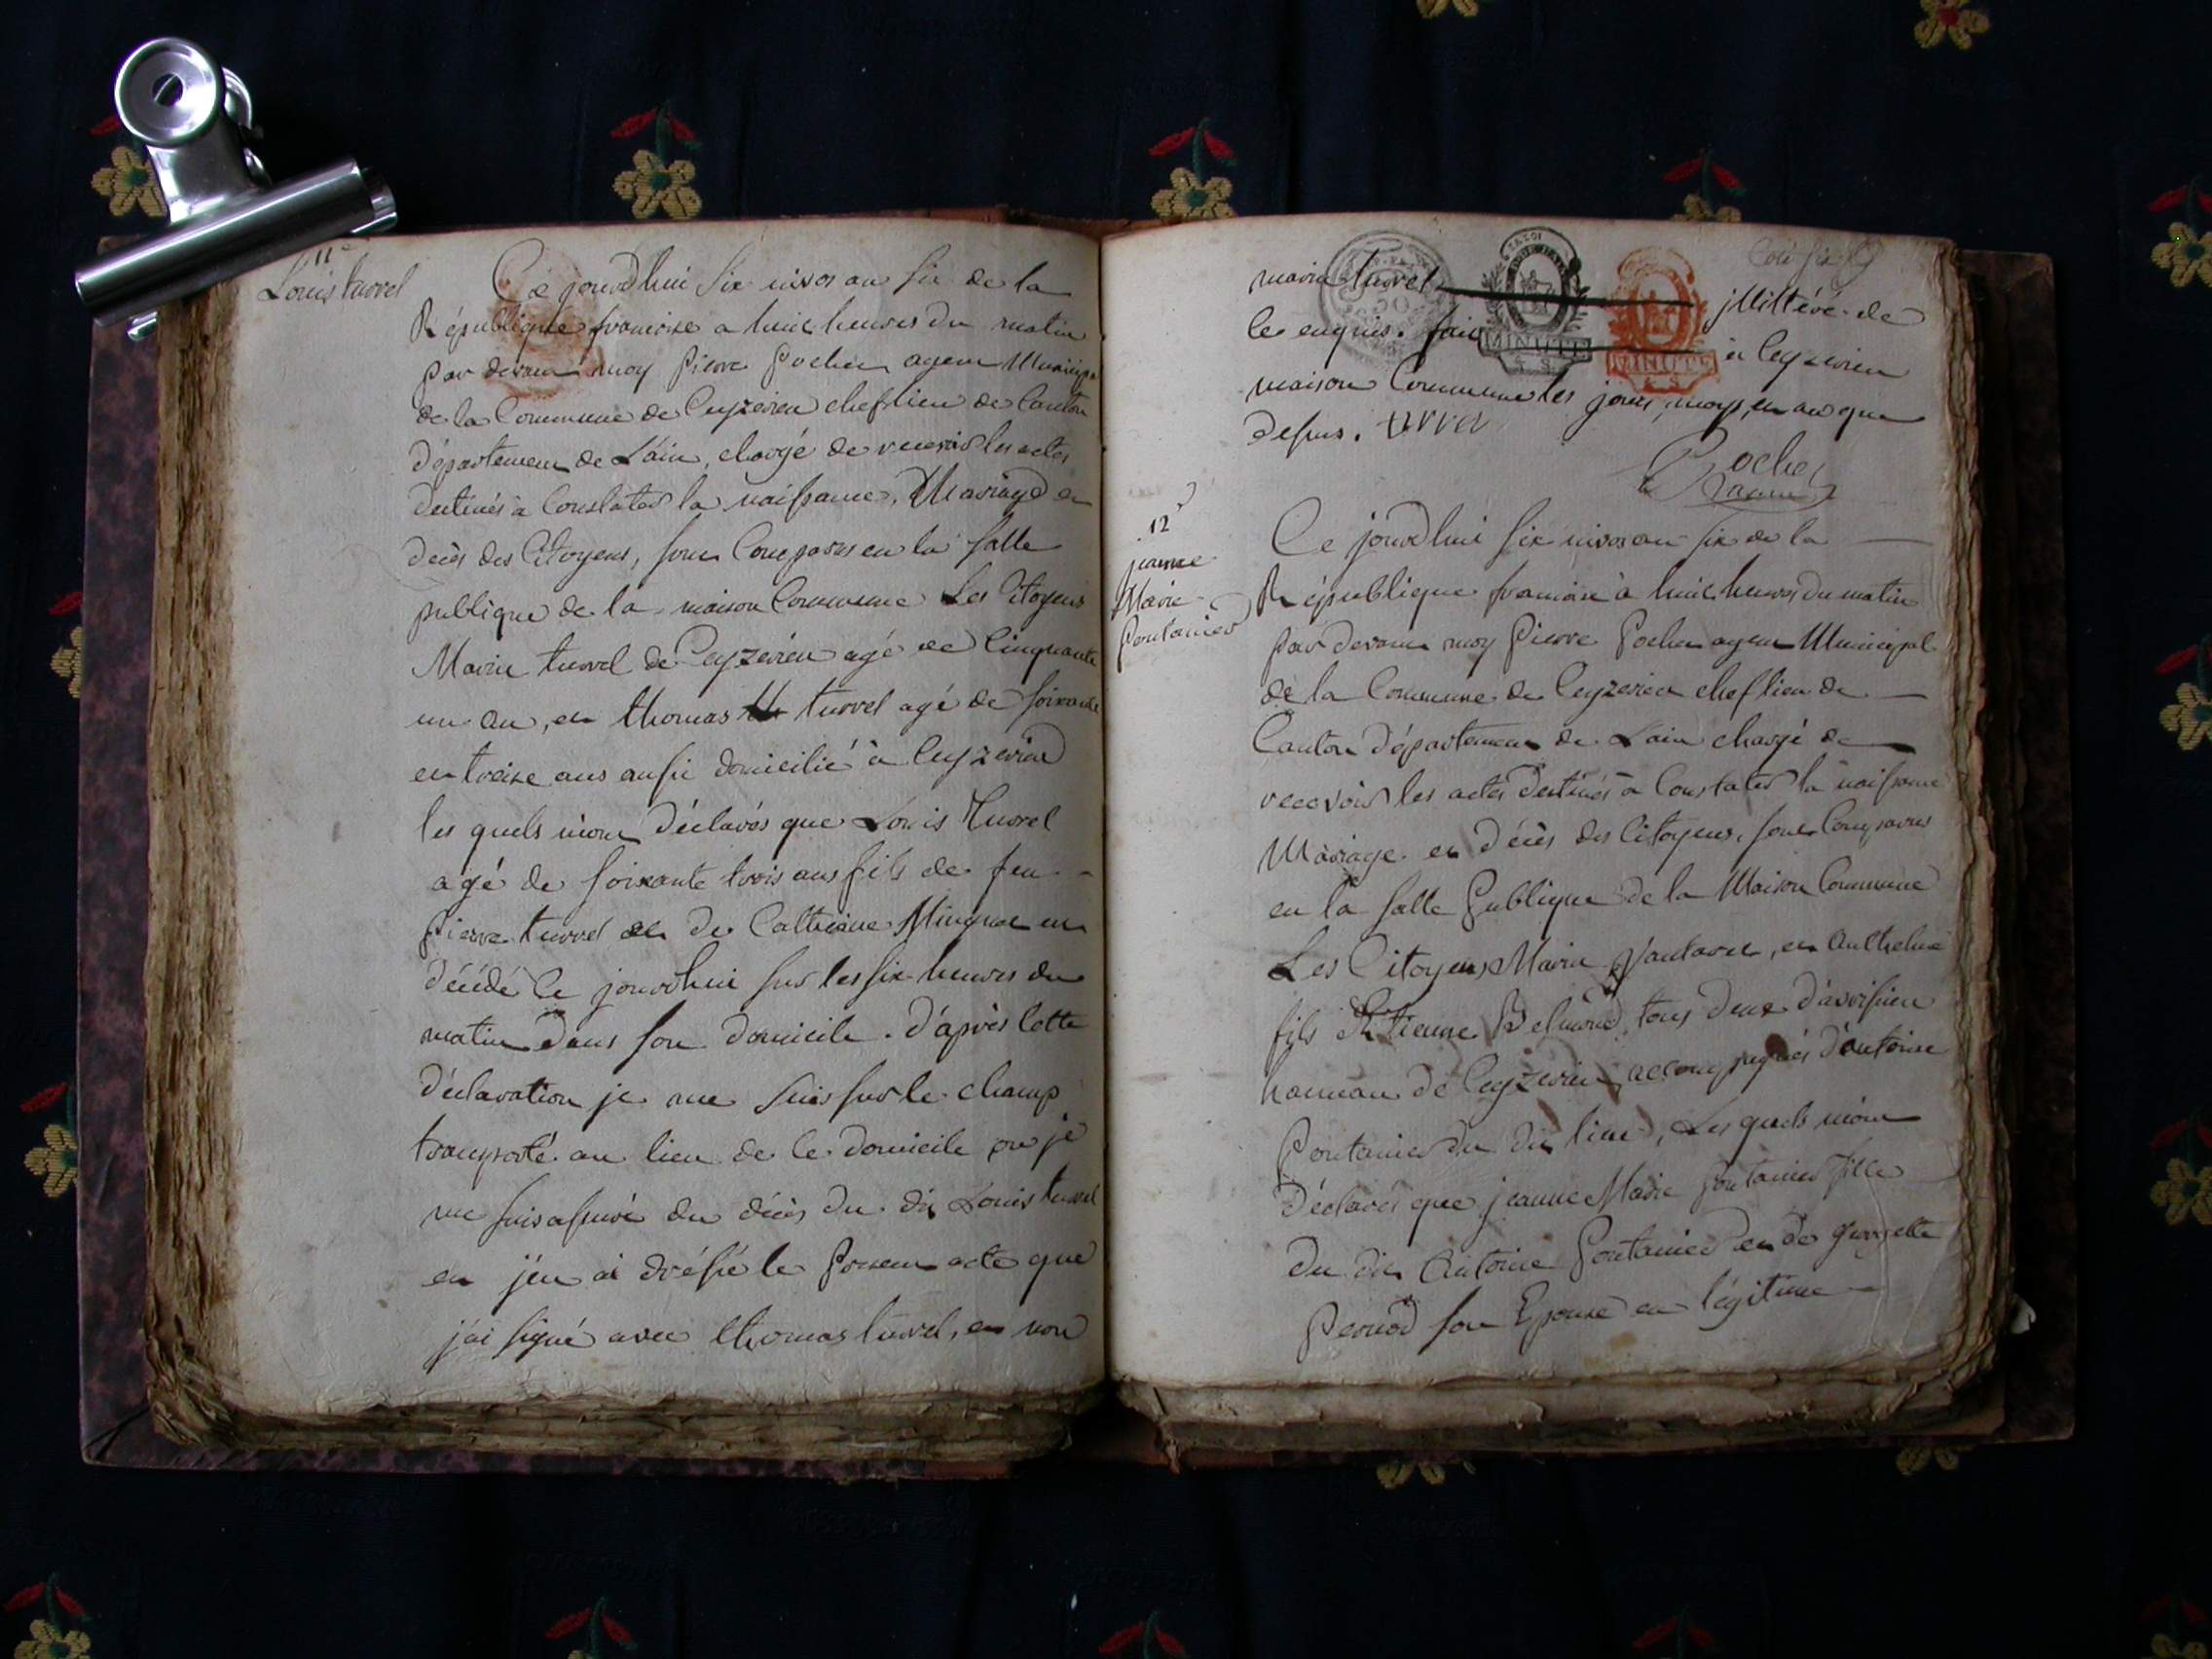 11e
Louis turrel
Ce jourdhui six nivos an six de la
République francoise a huit heures du matin
par devant moy Pierre Pochet agent Municipal
de la Commune de Ceyzerieu cheflieu de Canton
département de Lain, chargé de recevoir les actes
destinés à Constater la naissance, Mariage et
décès des Citoyens, sont Comparus en la salle
publique de la maison Commune Les Citoyens
Marin turrel de Ceyzerieu agé de Cinquante
un an, et thomas turrel agé de soixante
et treize ans aussi domicilié à Ceyzerieu
les quels mont déclarés que Louis Turrel
agé de soixante trois ans fils de feu
Pierre turrel et de Catherine Minguet est
décédé Ce jourdhui sur les six heures du
matin dans son domicile. d'après cette
déclaration je me suis sur le champ
transporté au lieu de ce domicile ou je
me suis assuré du décès du dit Louis turrel
et j'en ai dréssé le Present acte que
j'ai signé avec thomas turrel, et non
Coté six
marin turrel illitéré de
ce enquis. fait à Ceyzerieu
maison Commune les jours, moys, et an que
dessus. turrel
Pochet
agent
12e
jeanne
Marie
Pontanier
Ce jourdhui six nivos an six de la
République francoise à huit heures du matin
par devant moy Pierre Pochet agent Municipal
de la Commune de Ceyzerieu cheflieu de
Canton département de Lain chargé de
recevoir les actes destinés à Constater la naissance
Mariage et décès des Citoyens, sont Comparus
en la salle Publique de la Maison Commune
Les Citoyens Marin, et Anthelme
fils Etienne Belmond, tous deux d'avrissieu
hameau de Ceyzerieu, accompagnés d'antoine
Pontanier du dit lieu, Les quels mont
Déclarés que jeanne Marie Pontanier fille
du dit Antoine Pontanier et de georgette
Pernod son Epouse en légitime
MINUTE
MINUTE